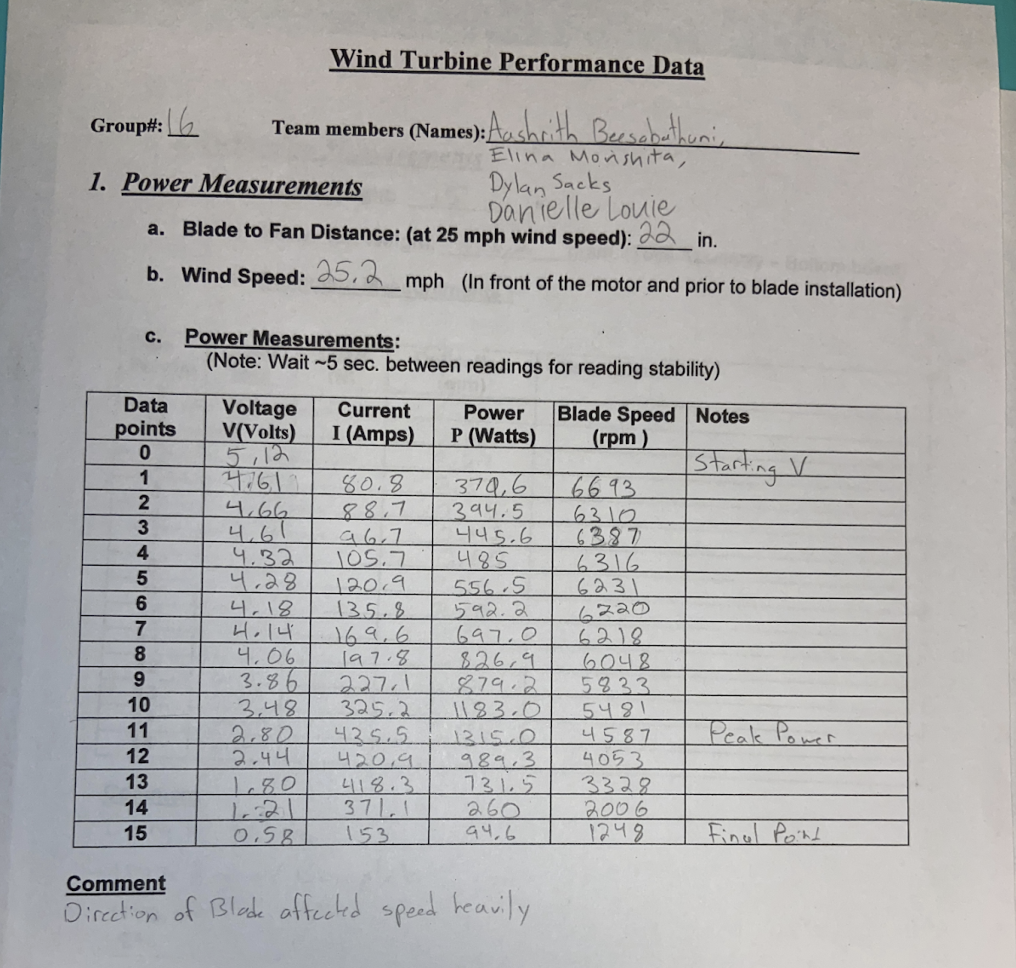 Wind Turbine Performance Data
Group#: 16 Team members (Names): Aashrith Beesabathuni,
Elina Morishita,
Dylan Sacks
Danielle Louie
1. Power Measurements
a. Blade to Fan Distance: (at 25 mph wind speed): 22 in.
b. Wind Speed: 25.2 mph (In front of the motor and prior to blade installation)
c. Power Measurements:
(Note: Wait ~5 sec. between readings for reading stability)
Data points Voltage V(Volts) Current I (Amps) Power P (Watts) Blade Speed (rpm) Notes
0 5,12 Starting V
1 4.61 80.8 370,6 6693
2 4.66 88.7 394.5 6310
3 4.61 96.7 445.6 6387
4 4.32 105.7 485 6316
5 4.28 120.9 556.5 6231
6 4.18 135.8 592.2 6220
7 4.14 169.6 697.0 6218
8 4.06 197.8 826.9 6048
9 3.86 227.1 879.2 5833
10 3.48 325.2 1183.0 5481
11 2.80 435.5 1315.0 4587 Peak Power
12 2.44 420.9 989.3 4053
13 1.80 418.3 731.5 3328
14 1.21 371.1 260 2006
15 0.58 153 94.6 1248 Final Point
Comment
Direction of Blade affected speed heavily